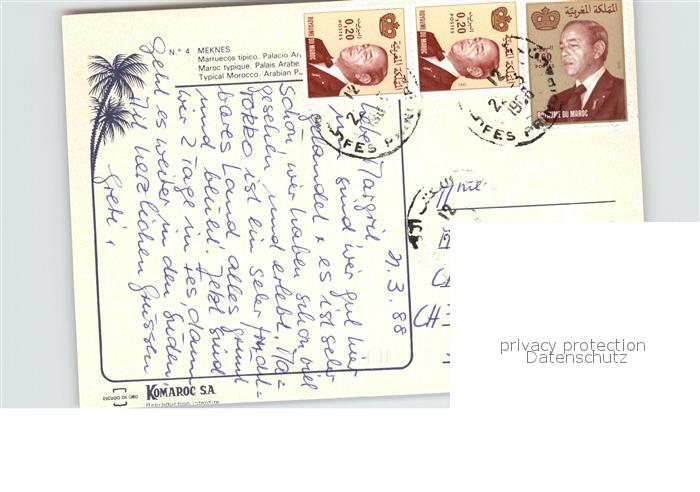 N.° 4 MEKNES
Marruecos típico. Palacio Ar
Maroc typique. Palais Arabe
Typical Morocco. Arabian P
ROYAUME DU MAROC
0,20
POSTES
المملكة المغربية
ROYAUME DU MAROC
0,20
POSTES
المملكة المغربية
ROYAUME DU MAROC
المملكة المغربية
FES PRINCIPAL
12
FES PRINCIPAL
12
1988
11.3.88
Liebe Margrit
sind wir gut hier
gelandet + es ist sehr
schön, wir haben schon viel
gesehen, und erlebt. Ma-
rokko ist ein sehr frucht-
bares Land, alles grünt
und blüht. Jetzt sind
wir 2 Tage in Fes, dann
geht es weiter in den Süden.
Mit herzlichen Grüssen
Greti.
Mme
CH
ESCUDO DE ORO
KOMAROC S.A.
Reproduction interdite
privacy protection
Datenschutz